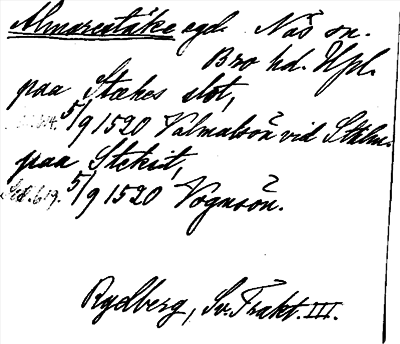 Almarestäke egd. Näs sn.
Bro hd. Upl.
paa Stækes slot,
5/9 1520 Valmalsön vid Sthlm.
paa Stekit,
5/9 1520 Vogmsön.
Rydberg, Sv. Trakt. III.